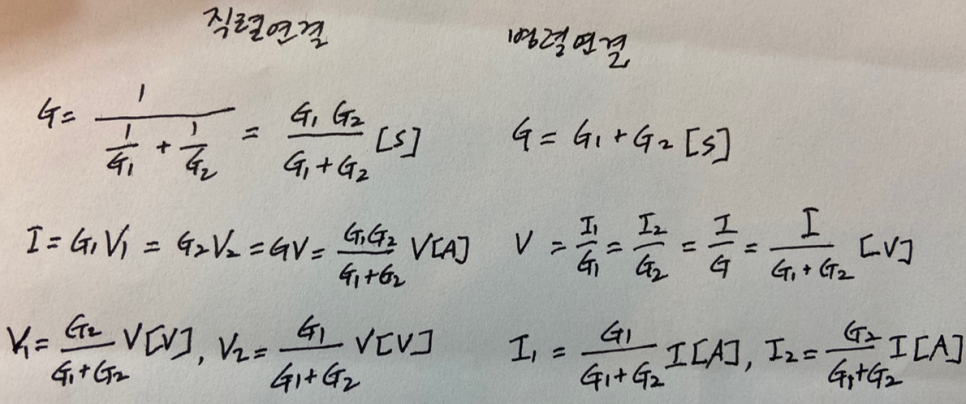 직렬연결
병렬연결
G = 1 / (1/G₁ + 1/G₂) = G₁ G₂ / (G₁ + G₂) [S]
G = G₁ + G₂ [S]
I = G₁V₁ = G₂V₂ = GV = G₁G₂ / (G₁+G₂) V[A]
V = I₁/G₁ = I₂/G₂ = I/G = I / (G₁ + G₂) [V]
V₁ = G₂ / (G₁+G₂) V[V], V₂ = G₁ / (G₁+G₂) V[V]
I₁ = G₁ / (G₁+G₂) I[A], I₂ = G₂ / (G₁+G₂) I[A]